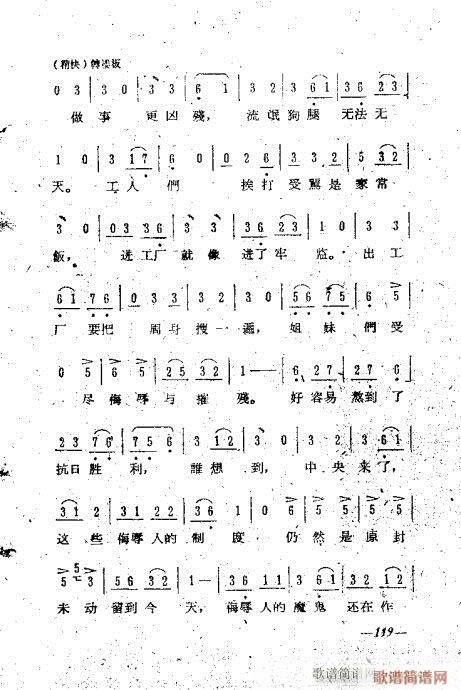 （稍快）转楼板
0 3 | 3 0 | 3 3 | 6 1 | 3 2 | 3 61 | 36 23 |
做事 更凶殘， 流氓狗腿 无法无
1 0 | 3 17 | 6 0 | 02 6 | 3 3 | 2 3 | 5 32 |
天。工人們 挨打受駡是家常
3 0 | 03 33 36 | 3 3 | 3 3 | 36 23 | 1 0 | 3 3 |
飯， 进工厂就像进了牢监。出工
61 76 | 0 3 3 3 | 3 2 2 | 3 0 | 56 75 | 6 5 |
厂要把 周身搜一遍，姐妹們受
0 5 | 6 5 | 25 32 | 1 — | 6 27 | 6 27 |
尽侮辱与摧残。好容易熬到了
23 76 | 7 5 6 | 3 12 | 3 0 | 2 3 | 3 61 |
抗日胜利，誰想到，中央来了，
31 2 | 31 22 | 36 | 1 0 | 6 5 | 5 5 |
这些侮辱人的制度仍然是原封
5 5 3 | 56 32 | 1 — | 36 31 | 3 61 | 3 2 2 |
未动留到今天，侮辱人的魔鬼还在作
—119—
歌谱简谱网
歌谱简谱网